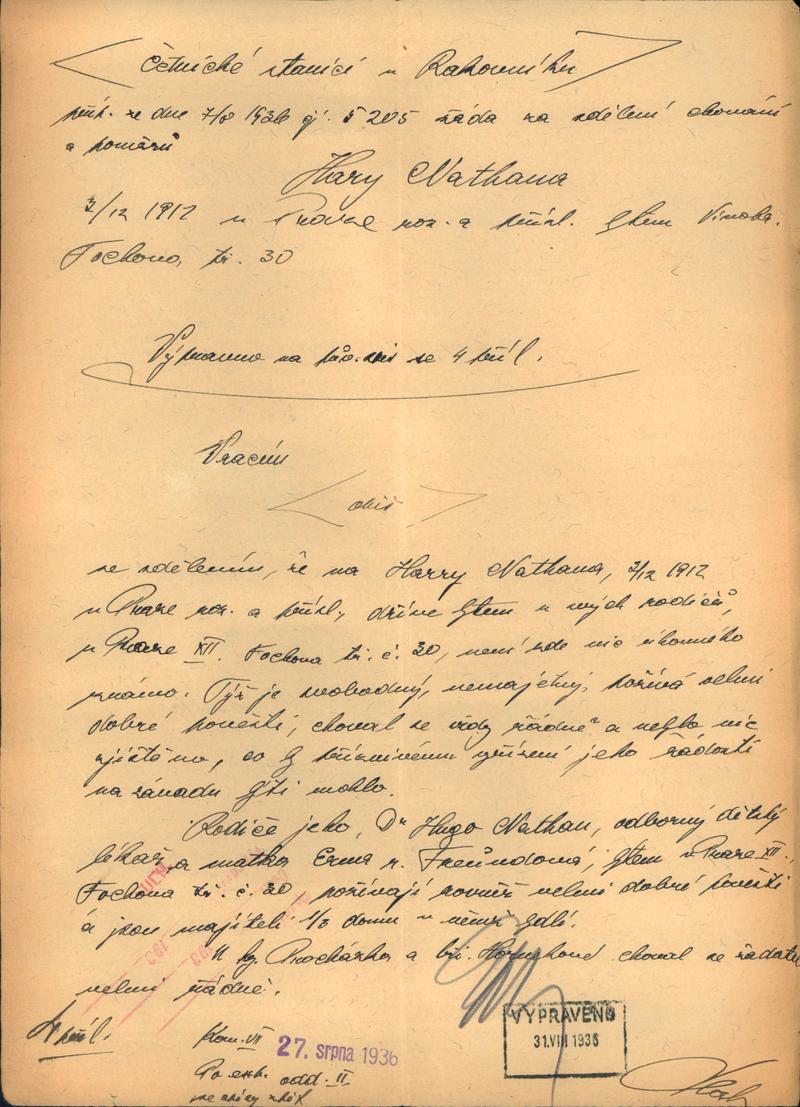 Četnické stanici v Rakovníku
příp. ze dne 7/8 1936 čj. 5205 žádá za sdělení chování
a poměrů
Hary Nathana
3/12 1912 v Praze nar. a přísl. bytem Vinoh.
Fochova tř. 30
Vypraveno na pův. se 4 příl.
Vracím
se sdělením, že na Harry Nathana, 3/12 1912
v Praze nar. a přísl., dříve bytem u svých rodičů,
v Praze XII. Fochova tř. č. 30, není zde nic úhonného
známo. Týž je svobodný, nemajetný, požívá velmi
dobré pověsti, choval se vždy řádně a nebylo nic
zjištěno, co by příznivému vyřízení jeho žádosti
na závadu býti mohlo.
Rodiče jeho, Dr Hugo Nathan, odborný dětský
lékař, a matka Erna r. Freundová, bytem v Praze XII.,
Fochova tř. č. 30, požívají rovněž velmi dobré pověsti
a jsou majiteli 1/3 domu v němž bydlí.
U Procházka a choval se žadatel
velmi řádně.
4 příl.
Kom. VII
27. srpna 1936
VYPRAVENO
31. VIII 1936
odd. II